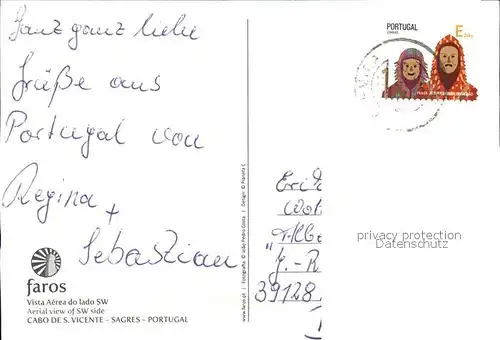 Ganz ganz liebe
Grüße aus
Portugal von
Regina +
Sebastian
faros
Vista Aérea do lado SW
Aerial view of SW side
CABO DE S. VICENTE - SAGRES - PORTUGAL
www.faros.pt | Fotografia: © João Pedro Costa | Design: © Planeta C
PORTUGAL
E 20g
39128
privacy protection
Datenschutz